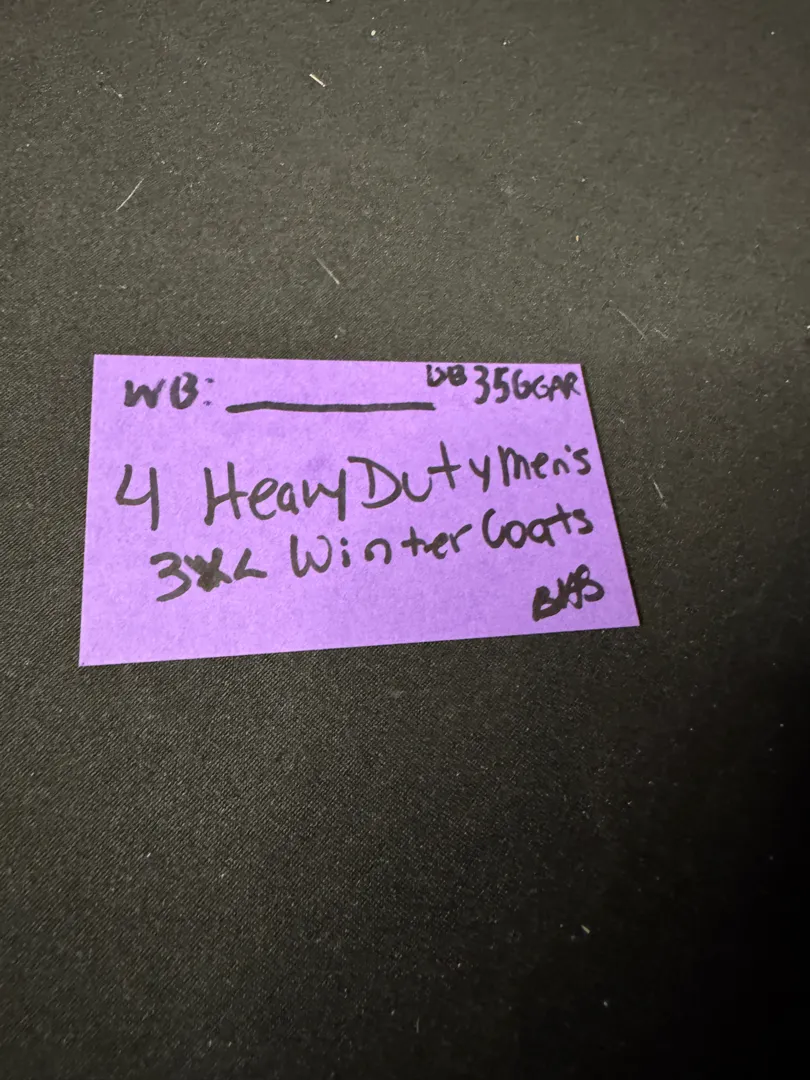 WB: ________ DB 35GGAR
4 Heavy Duty Men's
3XL Winter Coats